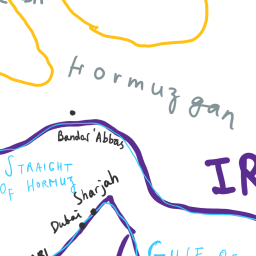 Hormuzgan
Bandar 'Abbas
IR
STRAIGHT
OF HORMUZ
Sharjah
Dubai
GULF OF